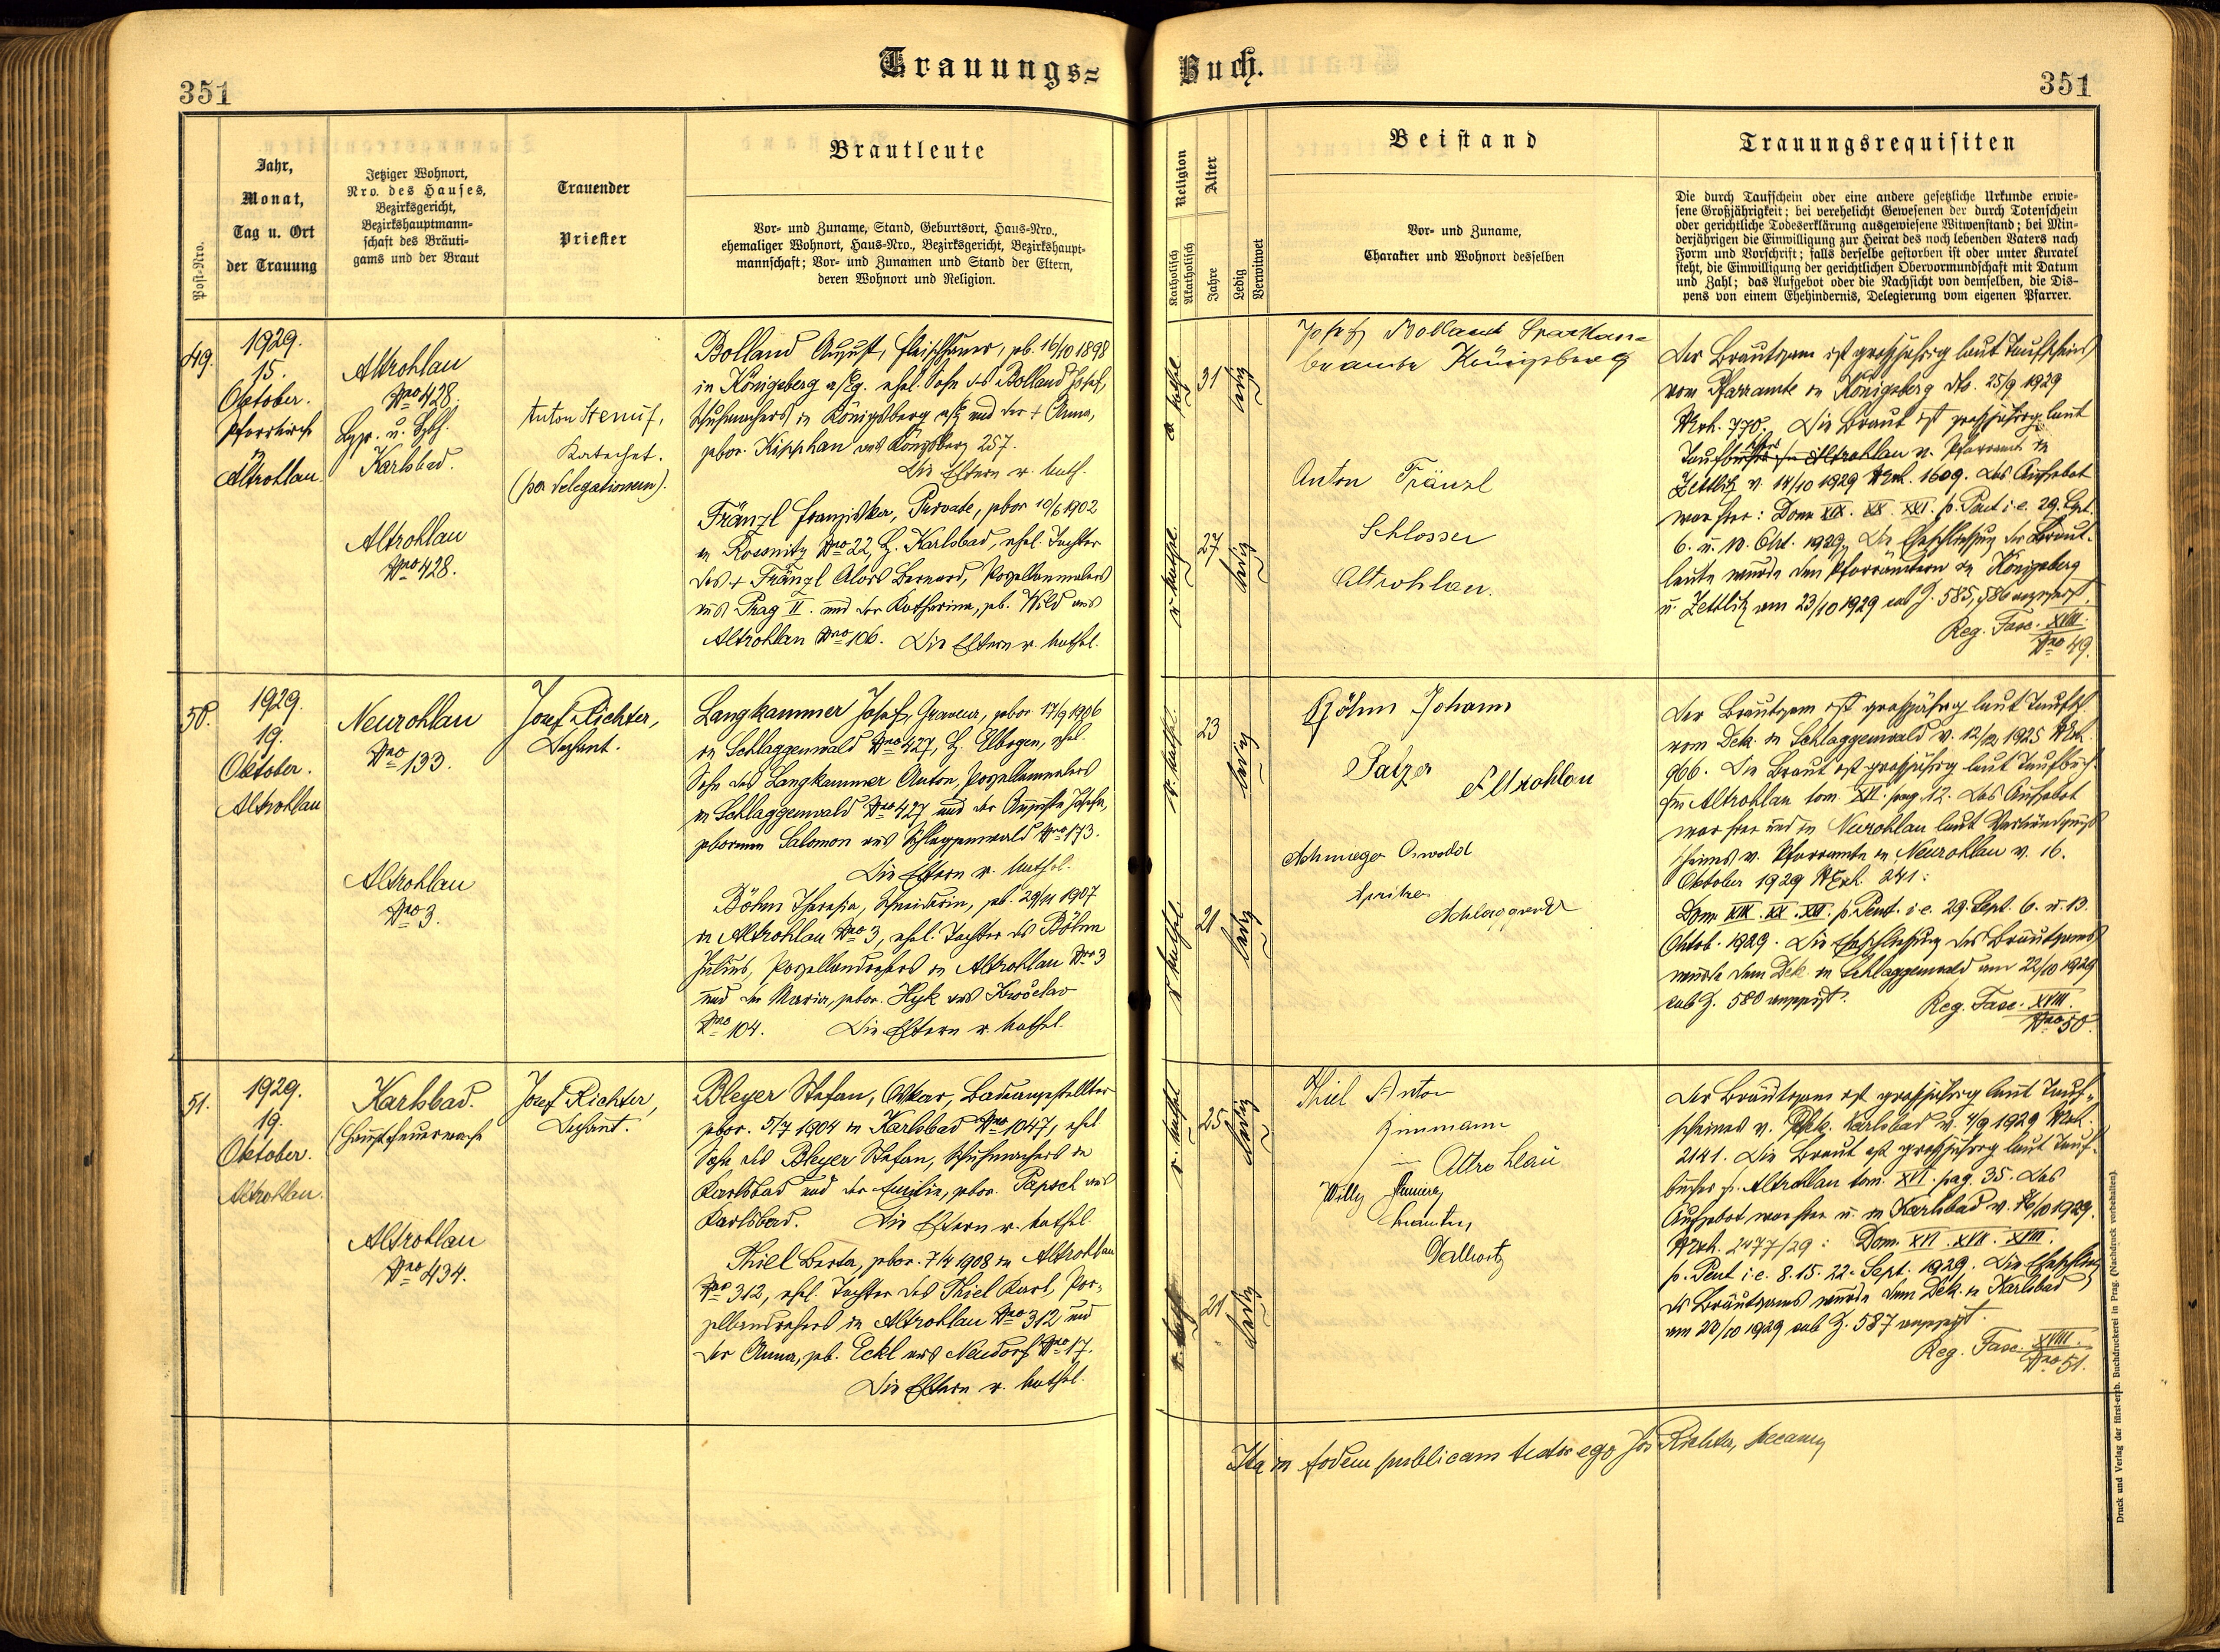 Trauungs=
Buch.
351
351
Post=Nro.
Jahr,
Monat,
Tag u. Ort
der Trauung
Jetziger Wohnort,
Nro. des Hauses,
Bezirksgericht,
Bezirkshauptmann=
schaft des Bräuti=
gams und der Braut
Trauender
Priester
Brautleute
Vor= und Zuname, Stand, Geburtsort, Haus=Nro.,
ehemaliger Wohnort, Haus=Nro., Bezirksgericht, Bezirkshaupt=
mannschaft; Vor= und Zunamen und Stand der Eltern,
deren Wohnort und Religion.
Religion
Katholisch
Akatholisch
Alter
Jahre
Ledig
Verwitwet
Beistand
Vor= und Zuname,
Charakter und Wohnort desselben
Trauungsrequisiten
Die durch Taufschein oder eine andere gesetzliche Urkunde erwie=
sene Großjährigkeit; bei verehelicht Gewesenen der durch Totenschein
oder gerichtliche Todeserklärung ausgewiesene Witwenstand; bei Min=
derjährigen die Einwilligung zur Heirat des noch lebenden Vaters nach
Form und Vorschrift; falls derselbe gestorben ist oder unter Kuratel
steht, die Einwilligung der gerichtlichen Obervormundschaft mit Datum
und Zahl; das Aufgebot oder die Nachsicht von demselben, die Dis=
pens von einem Ehehindernis, Delegierung vom eigenen Pfarrer.
49.
1929.
15.
Oktober.
Pfarrkirche
in
Altrohlau.
Altrohlau
Nro 428.
Karlsbad.
Altrohlau
Nro 428.
Anton
Katechet.
(per delegationem).
Bolland August, Fleischhauer, geb. 16/10 1898
in Königsberg a/Eg. ehel. Sohn des Bolland Josef,
Schuhmachers in Königsberg a/Eg und der + Anna,
gebor. Kipphan aus Königsberg 257.
Die Eltern r. kath.
Fränzl Franziska, Private, gebor 10/6 1902
in Rossnitz Nro 22, B. Karlsbad, ehel. Tochter
des + Fränzl Alois Bernard, Porzellanmalers
aus Prag II. und der Katharina, geb. Wild aus
Altrohlau Nro 106. Die Eltern r. kathol.
r. kathol.
31
ledig
r. kathol.
27
ledig
Josef Bolland Sparkasse=
beamter Königsberg
Anton Fränzl
Schlosser
Altrohlau.
Der Bräutigam ist großjährig laut Taufschein
vom Pfarramte in Königsberg dto. 25/9 1929
NExh. 770. Die Braut ist großjährig laut
Zettlitz v. 14/10 1929 NExh. 1609. Das Aufgebot
war hier: Dom XIX. XX. XXI. p. Pent i. e. 29. Sept.
6. u. 13. Okt. 1929. Die Eheschließung der Braut=
leute wurde den Pfarrämtern in Königsberg
u. Zettlitz am 23/10 1929 sub Z. 585, 586 angezeigt.
Reg. Fasc. XVIII.
Nro 49.
50.
1929.
19.
Oktober.
Altrohlau
Neurohlau
Nro 133.
Altrohlau
Nro 3.
Josef Richter,
Dechant.
Langhammer Josef, Graveur, gebor 17/9 1906
in Schlaggenwald Nro 427, B. Elbogen, ehel.
Sohn des Langhammer Anton, Porzellanmalers
in Schlaggenwald Nro 427 und der Augusta Josefa,
geborenen Salomon aus Schlaggenwald Nro 173.
Die Eltern r. kathol.
Böhm Theresia, Schneiderin, geb. 29/11 1907
in Altrohlau Nro 3, ehel. Tochter des Böhm
Julius, Porzellandrehers in Altrohlau Nro 3
und der Maria, gebor. Hyk aus
Nro 104. Die Eltern r. kathol.
r. kathol.
23
ledig
r. kathol.
21
ledig
Böhm Johann
Altrohlau
Oswald
Der Bräutigam ist großjährig laut Taufsch.
vom Dek. in Schlaggenwald v. 12/12 1925 NExh.
966. Die Braut ist großjährig laut Taufbuch
in Altrohlau tom. XVI. pag. 12. Das Aufgebot
war hier und in Neurohlau laut Verkündigungs
scheines v. Pfarramte in Neurohlau v. 16.
Oktober 1929 NExh. 241:
Dom. XIX. XX. XXI. p. Pent. i. e. 29. Sept. 6. u. 13.
Oktob. 1929. Die Eheschließung des Bräutigams
wurde dem Dek. in Schlaggenwald am 22/10 1929
sub Z. 580 angezeigt.
Reg. Fasc. XVIII.
Nro 50.
51.
1929.
19.
Oktober.
Altrohlau.
Karlsbad.
(Hauptfeuerwache
Altrohlau
Nro 434.
Josef Richter,
Dechant.
Bleyer Stefan, Oskar, Badeangestellter
gebor. 5/7 1904 in Karlsbad Nro 1047, ehel
Sohn des Bleyer Stefan, Schuhmachers in
Karlsbad und der Emilie, gebor. Papsch aus
Karlsbad. Die Eltern r. kathol.
Thiel Berta, gebor. 7/4 1908 in Altrohlau
Nro 312, ehel. Tochter des Thiel Karl, Por=
zellandrehers in Altrohlau Nro 312 und
der Anna, geb. Eckl aus Neudorf Nro 17.
Die Eltern r. kathol.
r. kathol
25
ledig
r. kathol
21
ledig
Thiel Anton
Zimmann
Altrohlau
Willy
Der Bräutigam ist großjährig laut Tauf=
scheines v. Dek. Karlsbad v. 4/9 1929 NExh.
2141. Die Braut ist großjährig laut Tauf=
buches in Altrohlau tom. XVI. pag. 35. Das
Aufgebot war hier u. in Karlsbad v. 16/10 1929.
NExh. 2477/29: Dom. XVI. XVII. XVIII.
p. Pent i. e. 8. 15. 22. Sept. 1929. Die Eheschließung
des Bräutigams wurde dem Dek. in Karlsbad
am 23/10 1929 sub Z. 587 angezeigt.
Reg. Fasc. XVIII.
Nro 51.
Ita in fidem publicam testor ego Jos Richter, decanus
Druck und Verlag der fürst-erzb. Buchdruckerei in Prag. (Nachdruck vorbehalten).